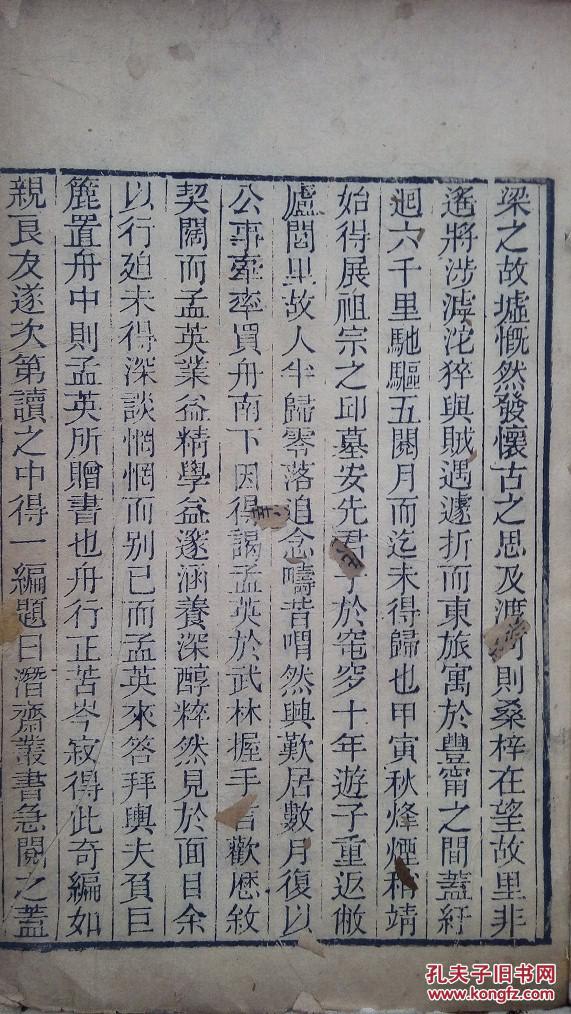 梁之故墟慨然發懷古之思及渡則桑梓在望故里非
遙將涉滹沱猝與賊遇遽折而東旅寓於豐甯之間蓋紆
迴六千里馳驅五閱月而迄未得歸也甲寅秋烽煙稍靖
始得展祖宗之邱墓安先君於窀穸十年遊子重返敝
廬閭里故人半歸零落追念疇昔喟然興歎居數月復以
公事牽率買舟南下因得謁孟英於武林握手言歡歷敘
契闊而孟英業益精學益邃涵養深醇粹然見於面目余
以行廹未得深談惘惘而别已而孟英來答拜輿夫負巨
簏置舟中則孟英所贈書也舟行正苦岑寂得此奇編如
親良友遂次第讀之中得一編題曰潛齋叢書急閱之蓋
孔夫子旧书网
www.kongfz.com